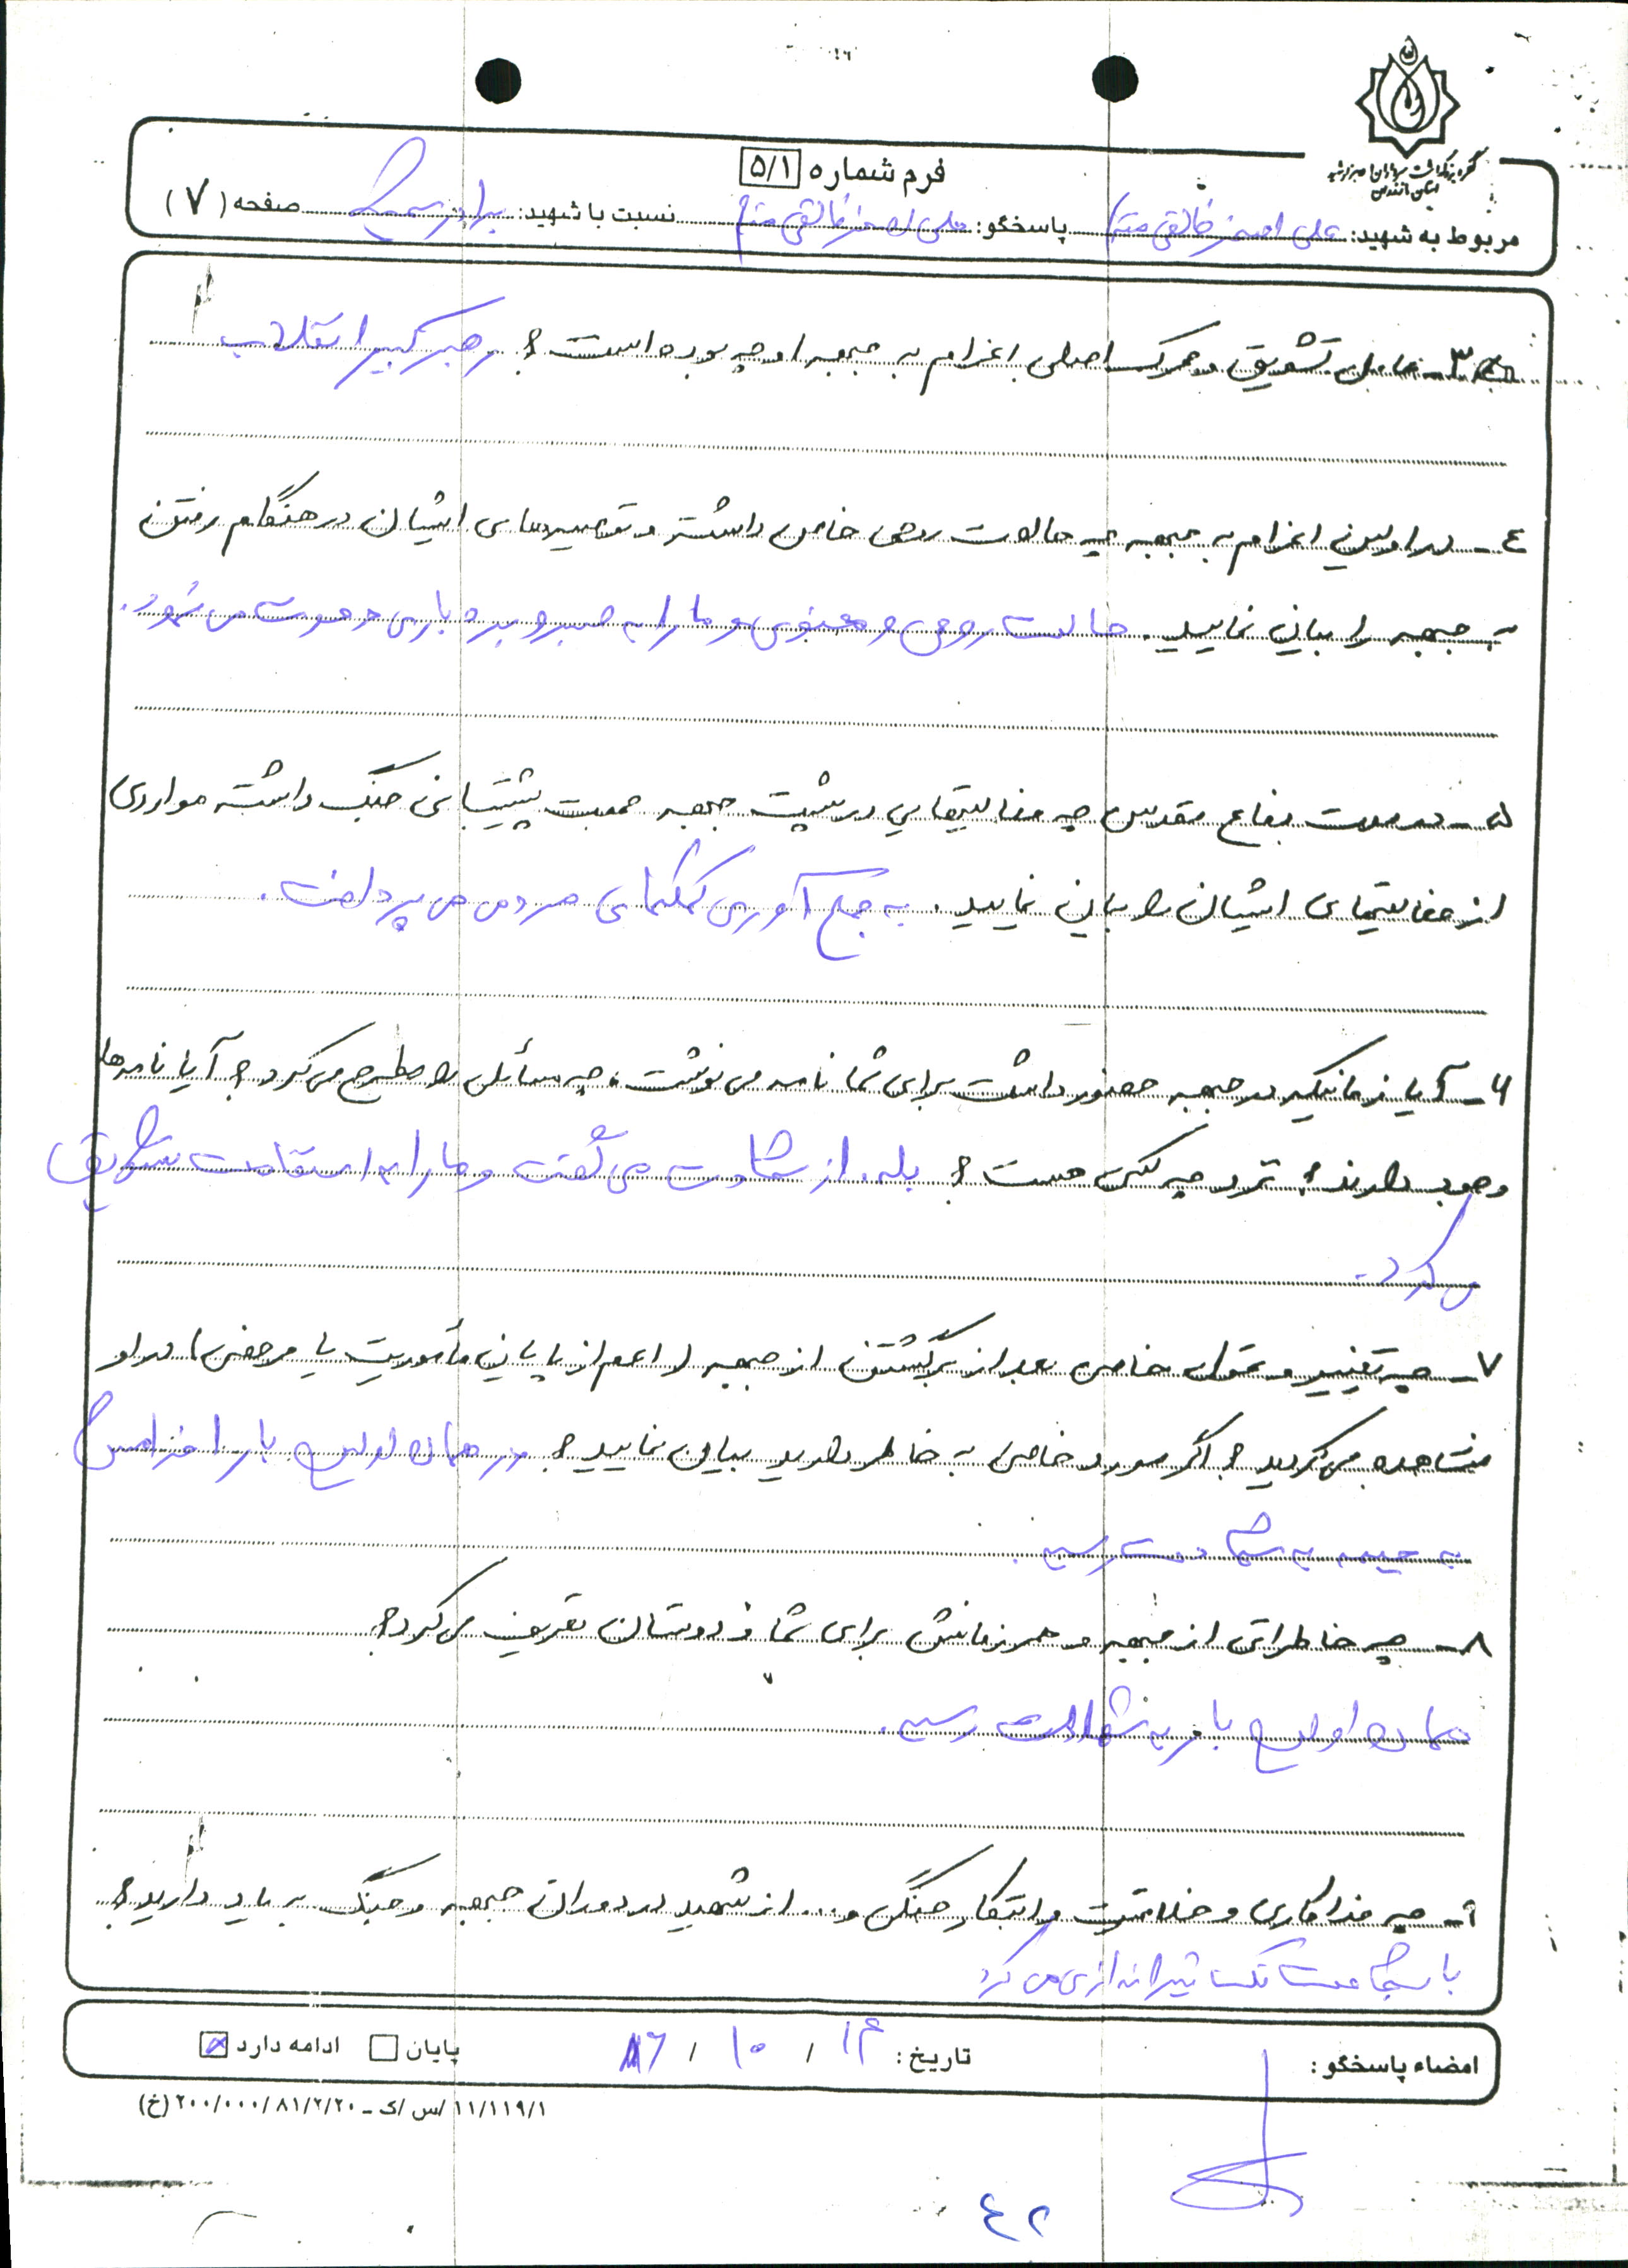 کنگره بزرگداشت سرداران و امیر شهید
استان مازندران
فرم شماره ۵/۱
مربوط به شهید: علی اصغر خالقی مقدم پاسخگو: علی اصغر خالقی مقدم نسبت با شهید: برادر صفحه (۷)
۳- عامل تشویق و محرک اصلی اعزام به جبهه او چه بوده است؟ رهبر کبیر انقلاب
٤- در اولین اعزام به جبهه چه حالات روحی خاص داشته و توصیه‌های ایشان در هنگام رفتن
به جبهه را بیان نمایید. حالت روحی و معنوی و ما را به صبر و بردباری دعوت می نمود.
۵- در مدت دفاع مقدس چه فعالیتهایی در پشت جبهه جهت پشتیبانی جنگ داشته مواردی
از فعالیتهای ایشان را بیان نمایید. به جمع آوری کمکهای مردمی می پرداخت.
۶- آیا زمانیکه در جبهه حضور داشت برای شما نامه می نوشت، چه مسائلی را مطرح می کرد؟ آیا نامه‌ها
وجود دارند؟ نزد چه کسی هست؟ بله. از شهادت می گفت و ما را به استقامت تشویق
می کرد.
۷- چه تغییر و تحول خاصی بعد از برگشتن از جبهه (اعم از پایان مأموریت یا مرخصی) در او
مشاهده می کردید؟ اگر مورد خاصی به خاطر دارید بیان نمایید؟ در همان اولین بار اعزامش
به جبهه به شهادت رسید.
۸- چه خاطراتی از جبهه و همرزمانش برای شما و دوستان تعریف می کرد؟
همان اولین بار به شهادت رسید.
۹- چه فداکاری و خلاقیت و ابتکار جنگی و... از شهید در دوران جبهه و جنگ به یاد دارید؟
با شجاعت تیراندازی می کرد
امضاء پاسخگو: تاریخ: ۱۴ / ۱۰ / ۸۶ پایان ادامه دارد
۱۱/۱۱۹/۱ /س /ک - ۲۰۰/۰۰۰/۸۱/۲/۲۰ (خ)
٤٢